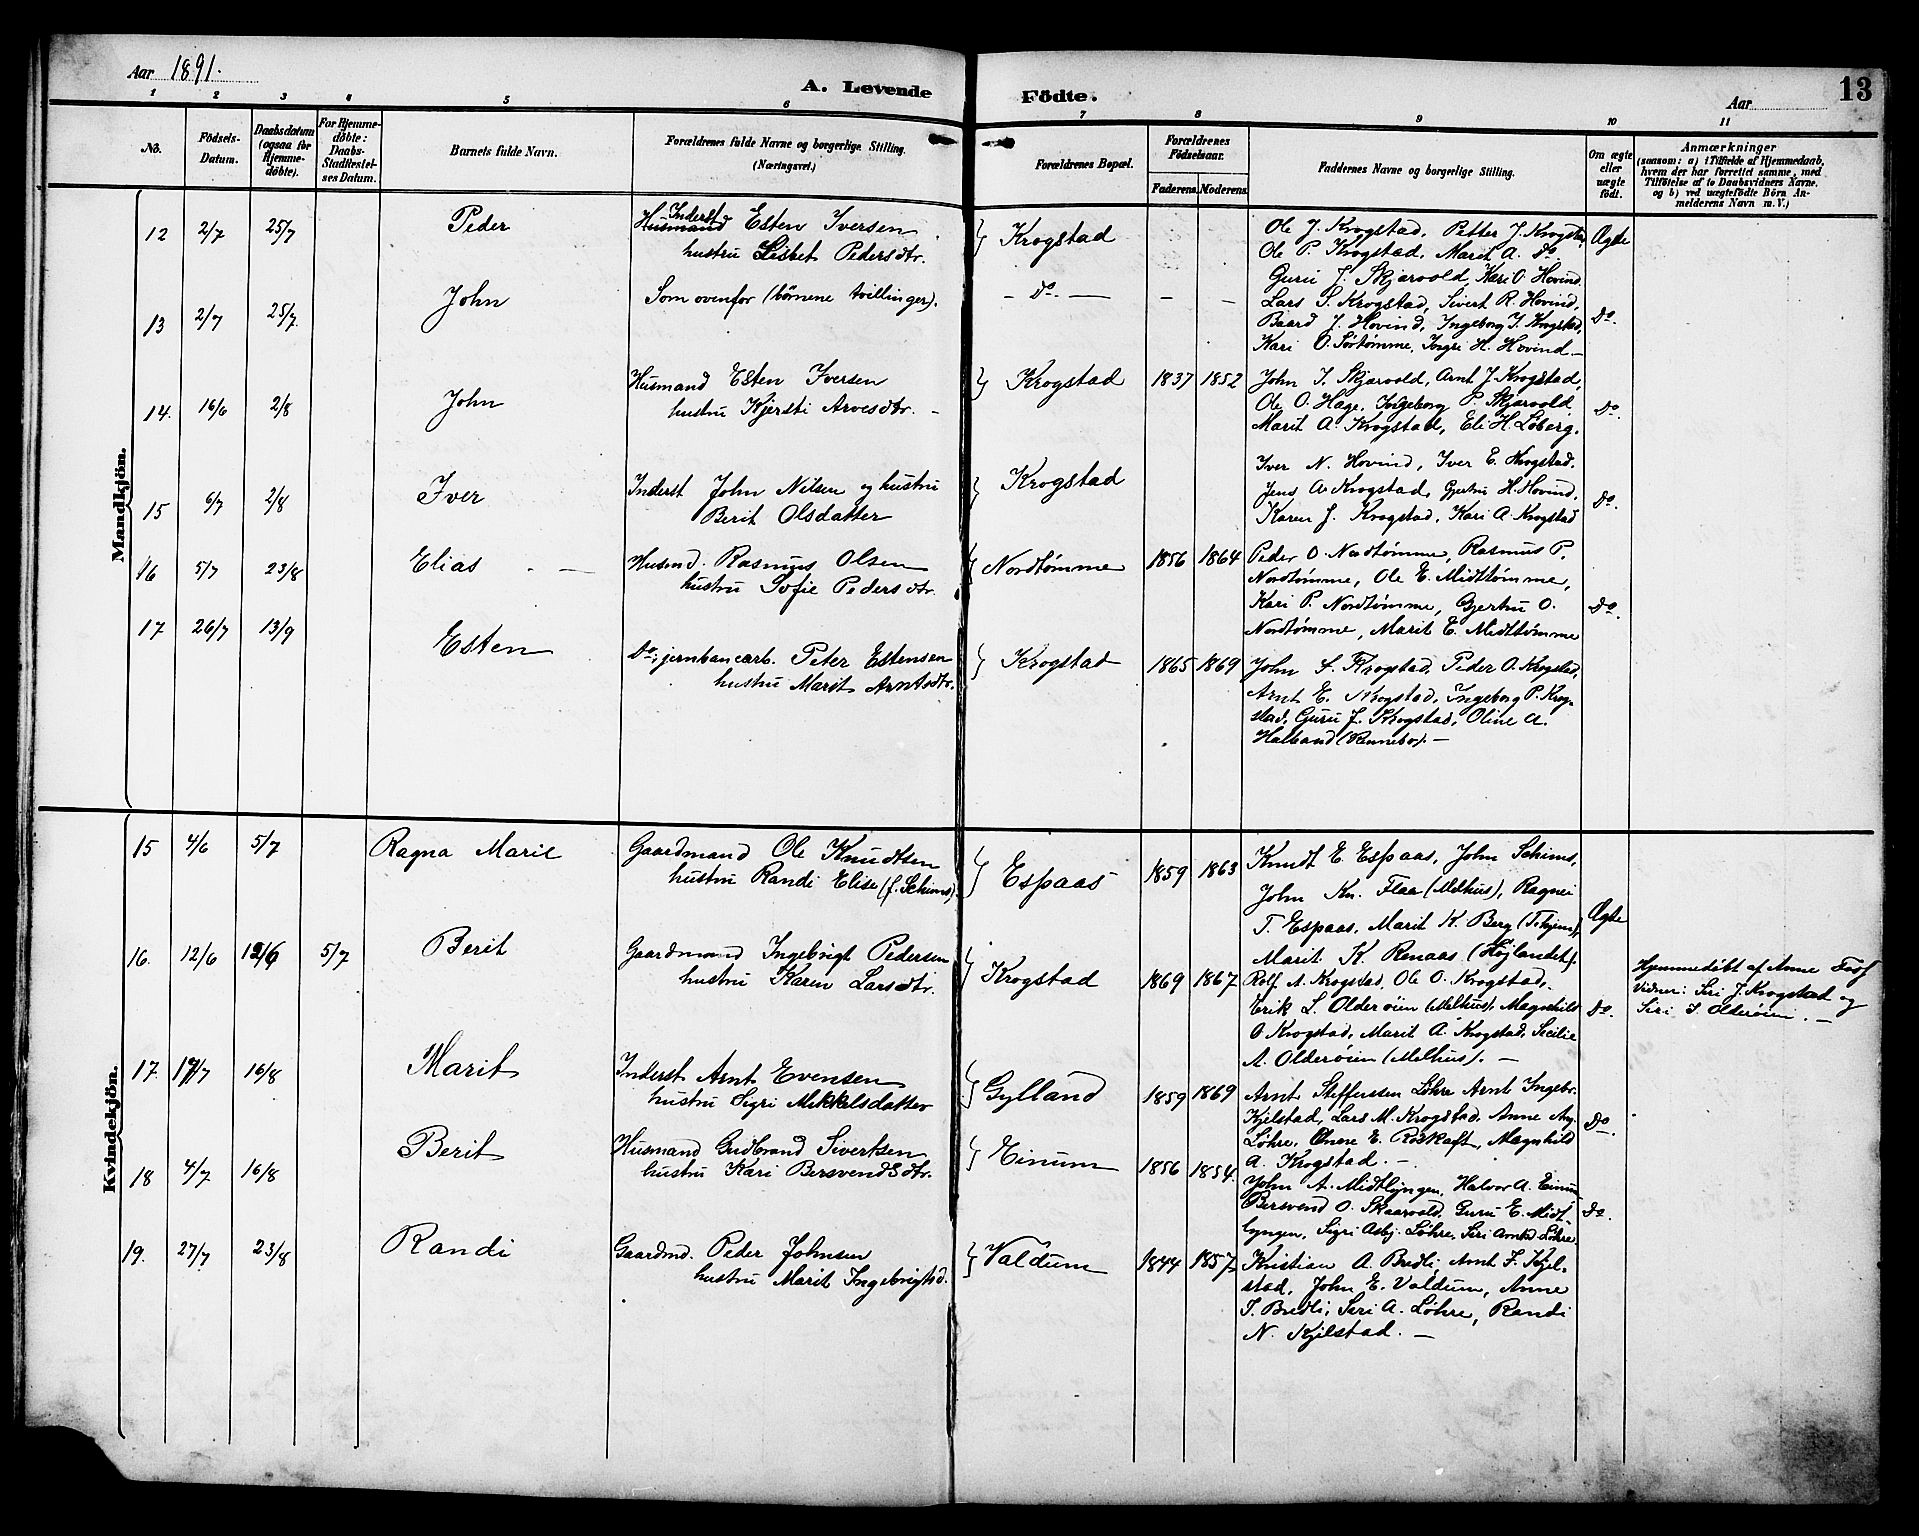 Aar 1891.
A. Levende Födte.
Aar
13
1 2 3 4 5 6 7 8 9 10 11
No.
Födsels-Datum.
Daabsdatum (ogsaa for Hjemme-döbte).
For Hjemme-döbte: Daabs-Stadfæstel-ses Datum.
Barnets fulde Navn.
Forældrenes fulde Navne og borgerlige Stilling.
(Næringsvei.)
Forældrenes Bopæl.
Forældrenes Födselsaar.
Faderens. Moderens.
Faddernes Navne og borgerlige Stilling.
Om ægte eller uægte födt.
Anmærkninger
(saasom: a) i Tilfælde af Hjemmedaab,
hvem der har forrettet samme, med
Tilföielse af to Daabsvidners Navne,
og b) ved uægtefödte Börn An-
melderens Navn m. V.)
Mandkjön.
12 2/7 25/7 Peder
Inderst
Husmand Esten Iversen
hustru Lisbet Pedersdtr.
Krogstad
Ole J. Krogstad, Petter J. Krogstad
Ole P. Krogstad, Marit A. Do.
Guru J. Skjærvold, Kari O. Hovind.
Ægte
13 2/7 25/7 John
Som ovenfor (børnene tvillinger).
– Do. – – –
Lars S. Krogstad, Sivert R. Hovind,
Baard J. Hovind, Ingeborg J. Krogstad,
Kari O. Sørtømme, Ingri H. Hovind. –
Do.
14. 16/6 2/8 John
Husmand Esten Iversen
hustru Kjersti Arvesdtr. –
Krogstad 1837 1852
John I. Skjærvold, Arnt J. Krogstad,
Ole O. Hage, Ingeborg P. Skjærvold,
Marit A. Krogstad, Eli H. Løberg.
Do.
15 6/7 2/8 Iver
Inderst John Nilsen og hustru
Berit Olsdatter
Krogstad
Iver N. Hovind, Iver E. Krogstad.
Jens A. Krogstad, Gjertru H. Hovind,
Karen J. Krogstad, Kari A. Krogstad
Do.
16 5/7 23/8 Elias
Husmd. Rasmus Olsen
hustru Sofie Pedersdtr.
Nordtømme 1856 1864
Peder O. Nordtømme, Rasmus P.
Nordtømme, Ole E. Midttømme,
Kari P. Nordtømme, Gjertru O.
Nordtømme, Marit E. Midttømme
Do.
17 26/7 13/9 Esten
Do., jernbanearb. Peter Estensen
hustru Marit Arntsdtr.
Krogstad 1865 1869
John L. Krogstad, Peder O. Krogstad,
Arnt E. Krogstad, Ingeborg P. Krog-
stad, Guru J. Krogstad, Oline A.
Halland (Rennebo). –
Kvindekjön.
15 4/6 5/7 Ragna Marie
Gaardmand Ole Knudtsen
hustru Randi Elise (f. Schims)
Espaas 1859 1863
Knudt E. Espaas, John Schims,
John Kn. Flaa (Melhus), Ragnei
T. Espaas, Marit K. Berg (Trhjem),
Marit K. Renaas (Højlandet).
Ægte
16. 12/6 12/6 5/7 Berit
Gaardmand Ingebrigt Pedersen
hustru Karen Larsdtr.
Krogstad 1869 1867
Rolf A. Krogstad, Ole O. Krogstad,
Erik L. Olderøien (Melhus), Magnhild
O Krogstad, Marit A. Krogstad, Secilie
A. Olderøien (Melhus). –
Do.
Hjemmedøbt af Anne
Vidner: Siri J. Krogstad og
Siri I. Olderøien. –
17. 17/7 16/8 Marit
Inderst Arnt Evensen
hustru Sigri Mikkelsdatter
Gylland 1859 1869
Arnt Steffensen Løhre Arnt Ingebr.
Kjelstad, Lars M. Krogstad, Anne
Løhre, E. Roskaft, Magnhild
A. Krogstad. –
Do.
18 4/7 16/8 Berit
Husmand Gudbrand Sivertsen
hustru Kari Bersvendsdtr.
Einum 1856 1854.
John A. Midtlyngen, Halvor A. Einum
Bersvend O. Skaarvold, Guru E. Midt-
lyngen, Sigri Asbj. Løhre, Siri Arntsd. Løhre.
Do.
19. 27/7 23/8 Randi
Gaardmd. Peder Johnsen
hustru Marit Ingebrigtsd.
Valdum 1844 1857
Kristian A. Bredli, Arnt F. Kjel-
stad, John E. Valdum, Anne
I. Bredli, Siri A. Løhre, Randi
N. Kjelstad. –